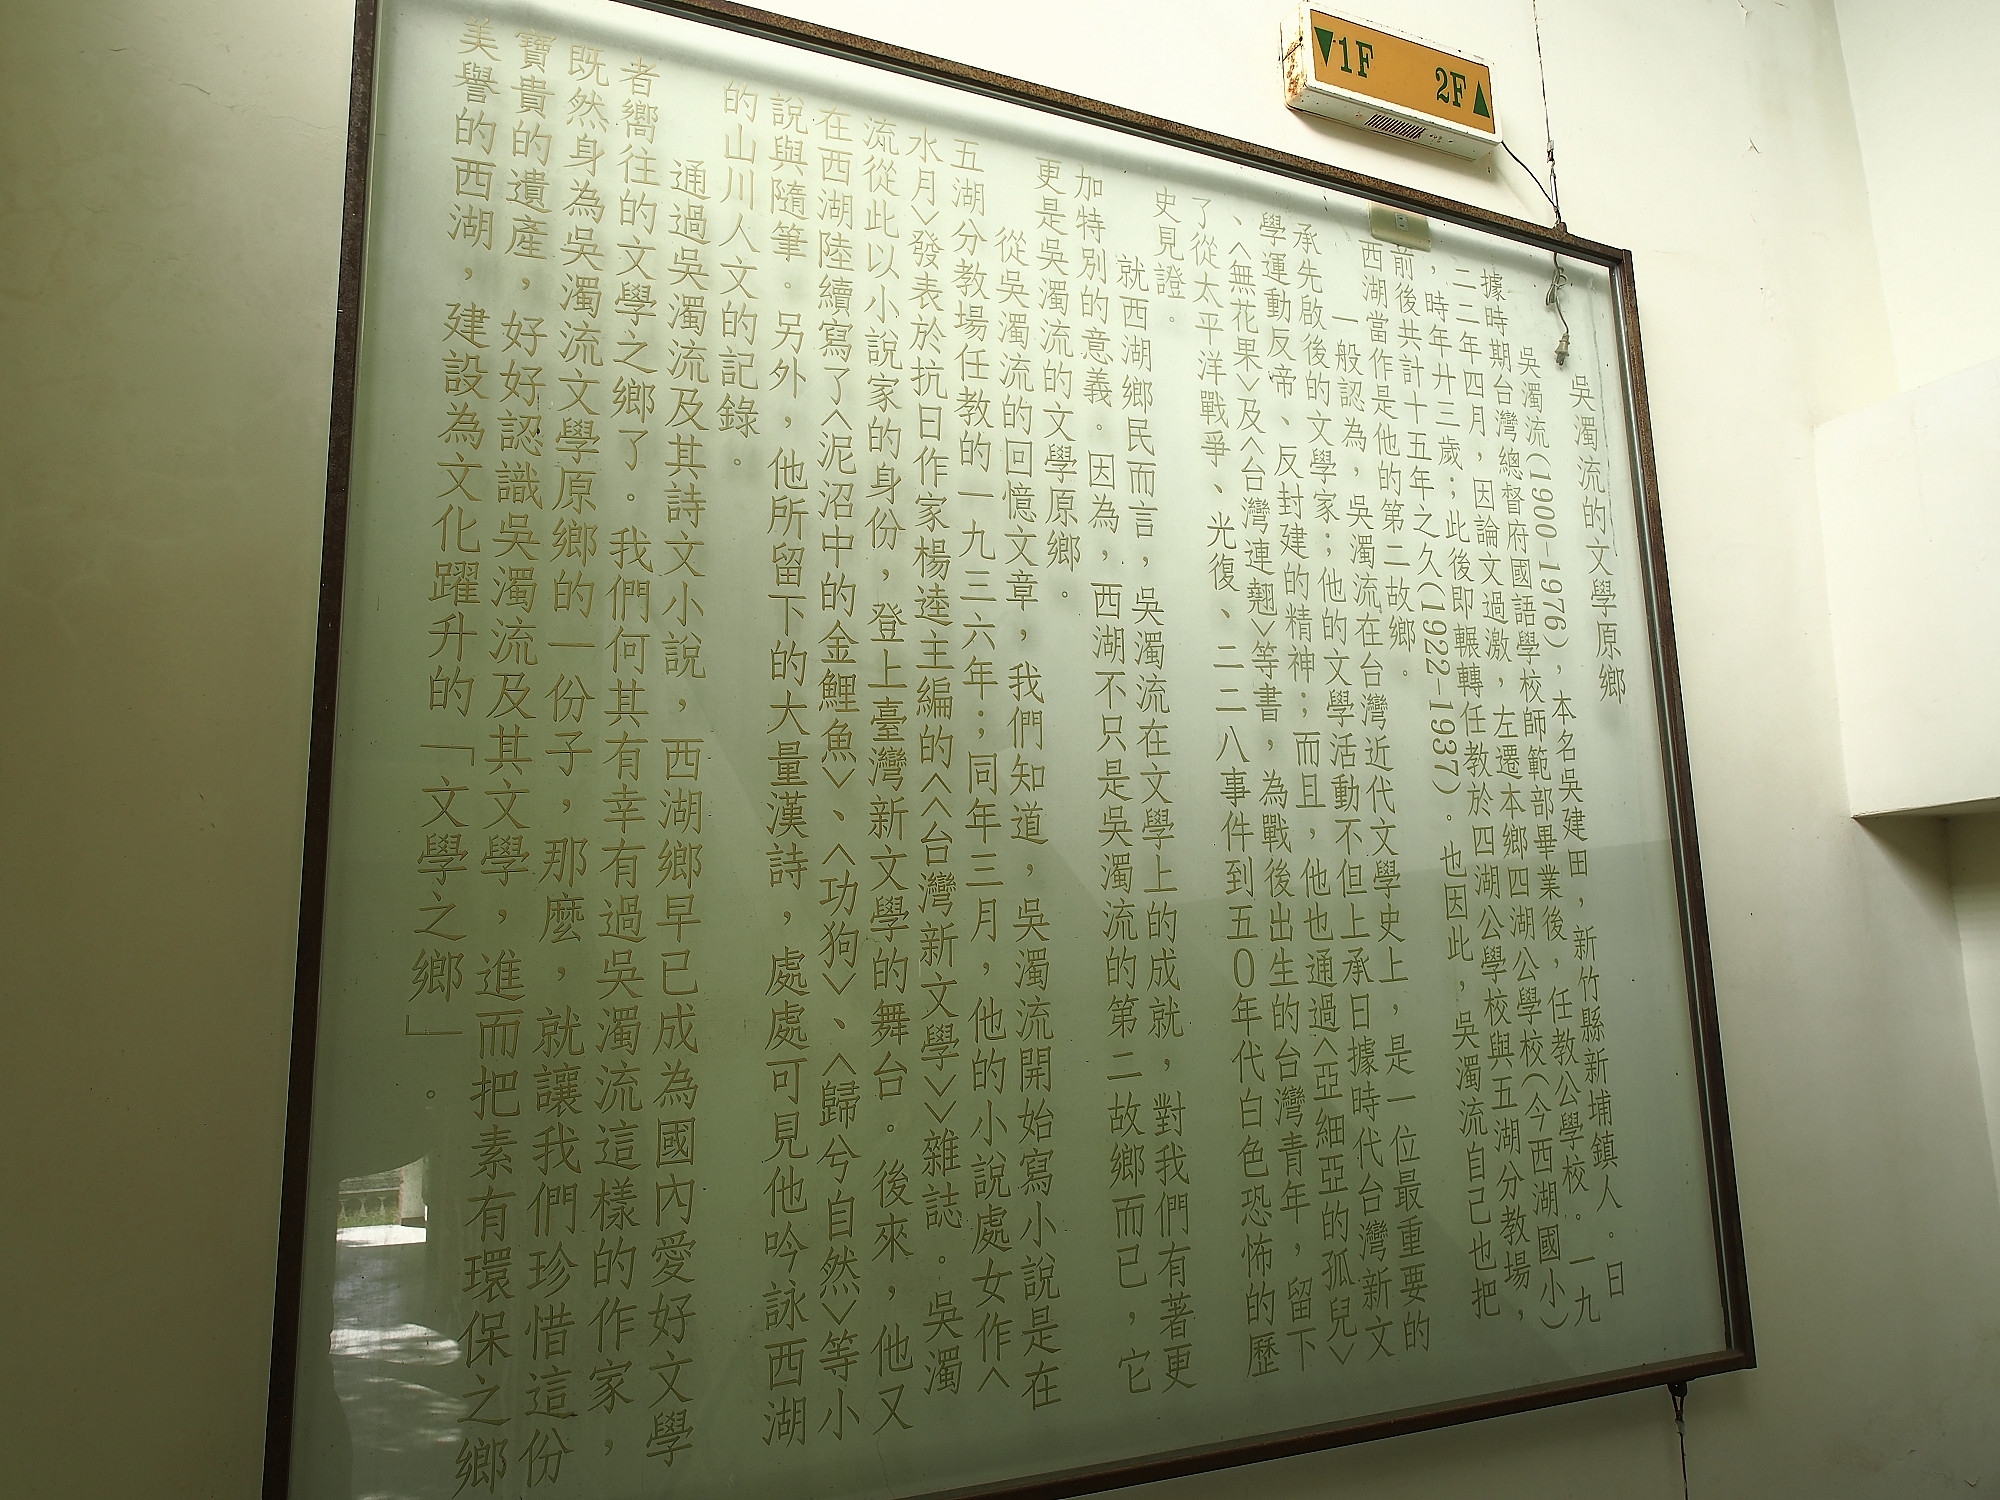 吳濁流的文學原鄉
吳濁流(1900-1976)，本名吳建田，新竹縣新埔鎮人。日
據時期台灣總督府國語學校師範部畢業後，任教公學校。一九
二二年四月，因論文過激，左遷本鄉四湖公學校(今西湖國小)
，時年廿三歲；此後即輾轉任教於四湖公學校與五湖分教場，
前後共計十五年之久(1922-1937)。也因此，吳濁流自己也把
西湖當作是他的第二故鄉。
一般認為，吳濁流在台灣近代文學史上，是一位最重要的
承先啟後的文學家；他的文學活動不但上承日據時代台灣新文
學運動反帝、反封建的精神；而且，他也通過<亞細亞的孤兒>
、<無花果>及<台灣連翹>等書，為戰後出生的台灣青年，留下
了從太平洋戰爭、光復、二二八事件到五０年代白色恐怖的歷
史見證。
就西湖鄉民而言，吳濁流在文學上的成就，對我們有著更
加特別的意義。因為，西湖不只是吳濁流的第二故鄉而已，它
更是吳濁流的文學原鄉。
從吳濁流的回憶文章，我們知道，吳濁流開始寫小說是在
五湖分教場任教的一九三六年；同年三月，他的小說處女作<
水月>發表於抗日作家楊逵主編的<<台灣新文學>>雜誌。吳濁
流從此以小說家的身份，登上臺灣新文學的舞台。後來，他又
在西湖陸續寫了<泥沼中的金鯉魚>、<功狗>、<歸兮自然>等小
說與隨筆。另外，他所留下的大量漢詩，處處可見他吟詠西湖
的山川人文的記錄。
通過吳濁流及其詩文小說，西湖鄉早已成為國內愛好文學
者嚮往的文學之鄉了。我們何其有幸有過吳濁流這樣的作家，
既然身為吳濁流文學原鄉的一份子，那麼，就讓我們珍惜這份
寶貴的遺產，好好認識吳濁流及其文學，進而把素有環保之鄉
美譽的西湖，建設為文化躍升的「文學之鄉」。
▼1F 2F▲